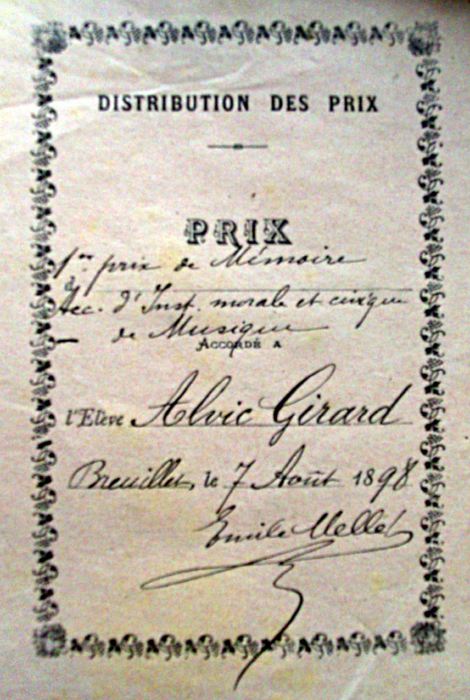 DISTRIBUTION DES PRIX
PRIX
1er prix de Mémoire
à
Acc. d'Inst. morale et civique
— de Musique
ACCORDÉ A
l'Elève Alvic Girard
Breuillet, le 7 Août 1898
Emile Mellet